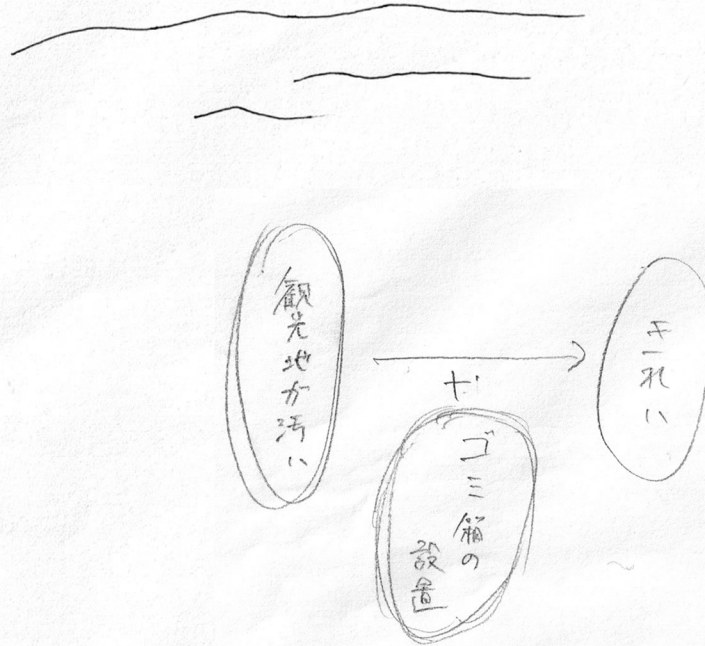 観光地が汚い
ゴミ箱の
設置